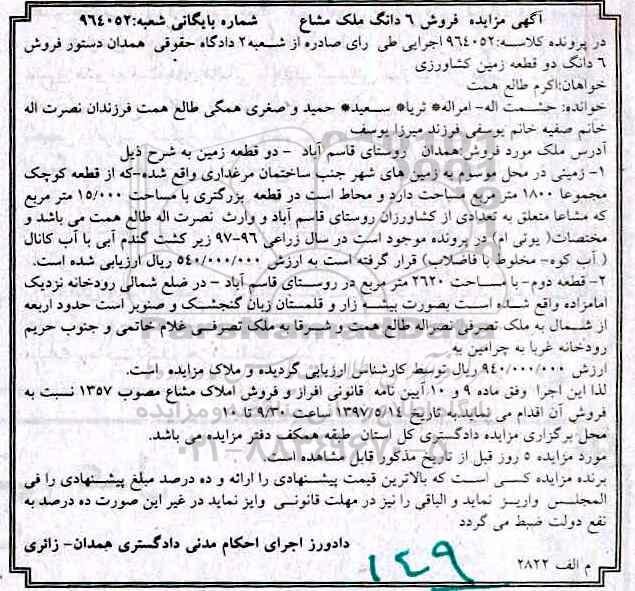 آگهی مزایده فروش ۶ دانگ ملک مشاع شماره بایگانی شعبه:۹۶۴۰۵۲
در پرونده کلاسه:۹۶۴۰۵۲ اجرایی طی رای صادره از شعبه۲ دادگاه حقوقی همدان دستور فروش
۶ دانگ دو قطعه زمین کشاورزی
خواهان:اکرم طالع همت
خوانده: حشمت اله- امراله* ثریا* سعید* حمید و صغری همگی طالع همت فرزندان نصرت اله
خانم صفیه خانم یوسفی فرزند میرزا یوسف
آدرس ملک مورد فروش:همدان روستای قاسم آباد - دو قطعه زمین به شرح ذیل
۱- زمینی در محل موسوم به زمین های شهر جنب ساختمان مرغداری واقع شده-که از قطعه کوچک
مجموعا ۱۸۰۰ متر مربع مساحت دارد و محاط است در قطعه بزرگتری با مساحت ۱۵/۰۰۰ متر مربع
که مشاعا متعلق به تعدادی از کشاورزان روستای قاسم آباد و وراث نصرت اله طالع همت می باشد و
مختصات( یوتی ام) در پرونده موجود است در سال زراعی ۹۶-۹۷ زیر کشت گندم آبی با آب کانال
( آب کوه- مخلوط با فاضلاب) قرار گرفته است به ارزش ۵۴۰/۰۰۰/۰۰۰ ریال ارزیابی شده است.
۲- قطعه دوم- با مساحت ۲۶۲۰ متر مربع در روستای قاسم آباد - در ضلع شمالی رودخانه نزدیک
امامزاده واقع شده است بصورت بیشه زار و قلمستان زبان گنجشک و صنوبر است حدود اربعه
از شمال به ملک تصرفی نصراله طالع همت و شرقا به ملک تصرفی غلام خاتمی و جنوب حریم
رودخانه غربا به چرامین به
ارزش ۹۴۰/۰۰۰/۰۰۰ ریال توسط کارشناس ارزیابی گردیده و ملاک مزایده است.
لذا این اجرا وفق ماده ۹ و ۱۰ آیین نامه قانونی افراز و فروش املاک مشاع مصوب ۱۳۵۷ نسبت به
فروش آن اقدام می نماید.به تاریخ ۱۳۹۷/۵/۱۴ ساعت ۹/۳۰ تا ۱۰
محل برگزاری مزایده دادگستری کل استان طبقه همکف دفتر مزایده می باشد.
مورد مزایده ۵ روز قبل از تاریخ مذکور قابل مشاهده است.
برنده مزایده کسی است که بالاترین قیمت پیشنهادی را ارائه و ده درصد مبلغ پیشنهادی را فی
المجلس واریز نماید و الباقی را نیز در مهلت قانونی وایز نماید در غیر این صورت ده درصد به
نفع دولت ضبط می گردد
دادورز اجرای احکام مدنی دادگستری همدان- زائری
م الف ۲۸۲۲
۱۴۹
ParsNamadData